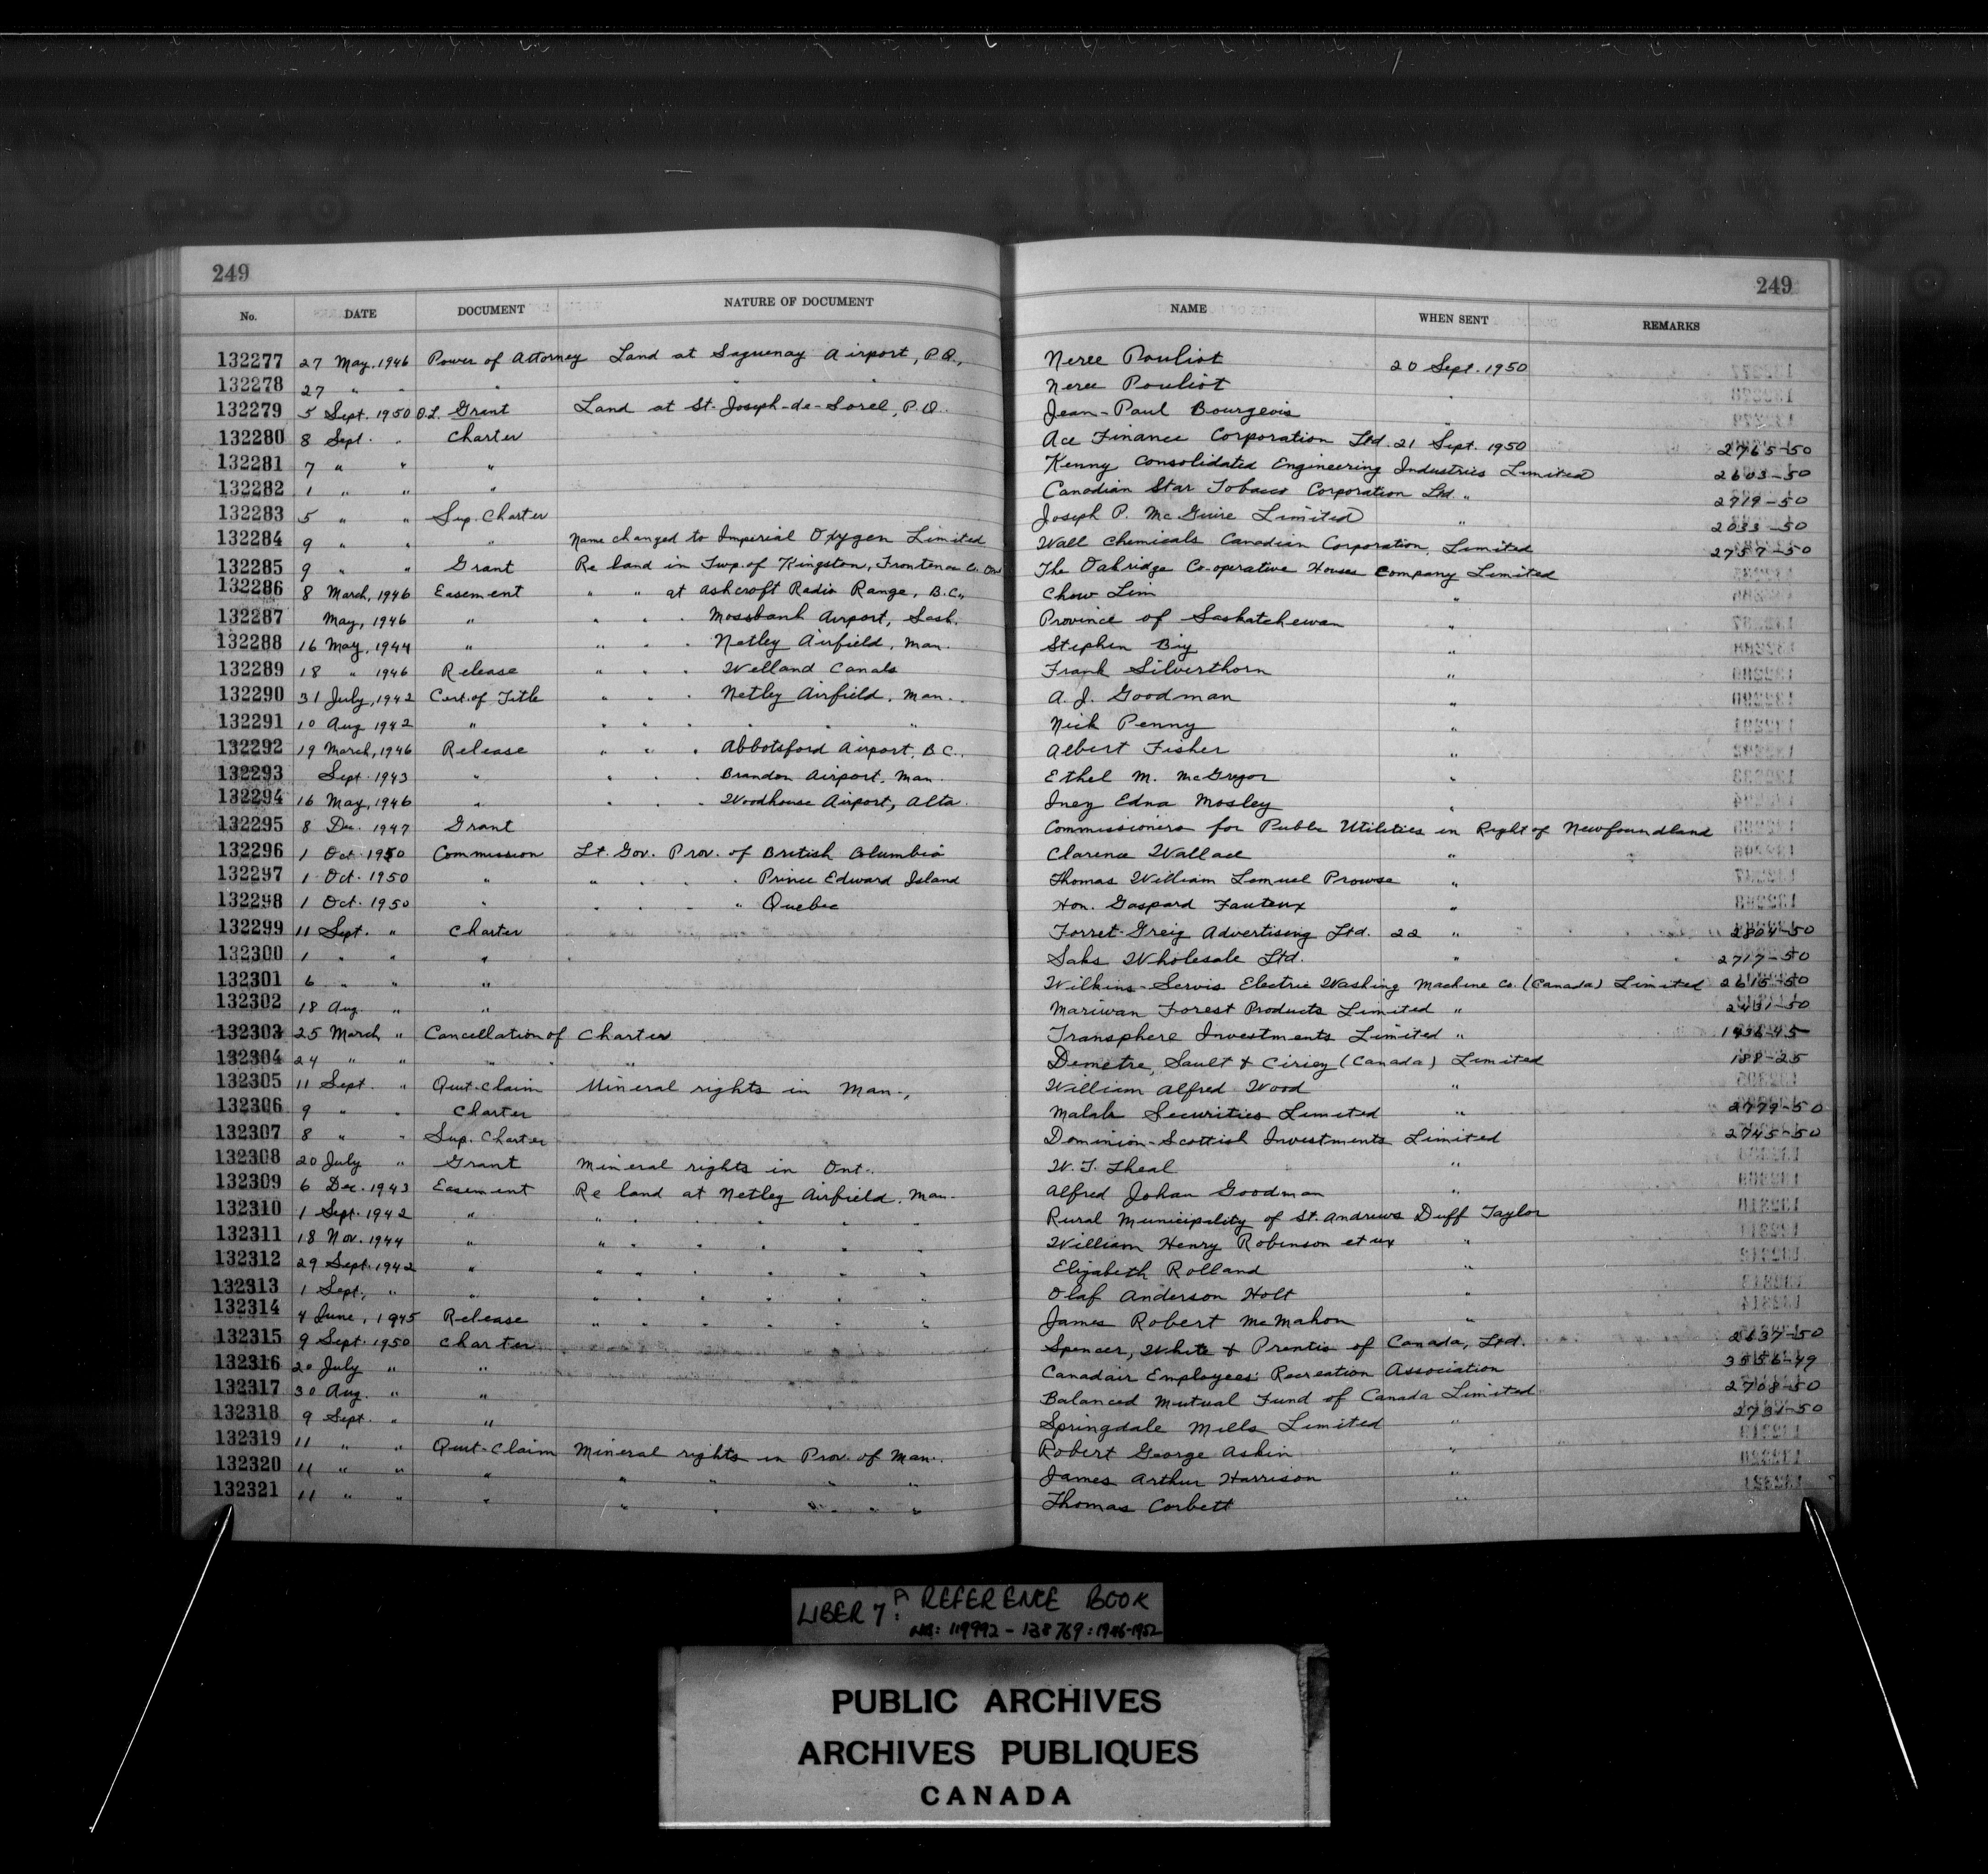 249 249
No. DATE DOCUMENT NATURE OF DOCUMENT NAME WHEN SENT REMARKS
132277 27 May, 1946 Power of Attorney Land at Saguenay Airport, P.Q., Neree Pouliot 20 Sept. 1950
132278 27 " " " " " Neree Pouliot "
132279 5 Sept. 1950 O.L. Grant Land at St. Joseph-de-Sorel, P.Q. Jean-Paul Bourgeois "
132280 8 Sept. " Charter Ace Finance Corporation Ltd. 21 Sept. 1950 2765-50
132281 7 " " " Kenny Consolidated Engineering Industries Limited 2603-50
132282 1 " " " Canadian Star Tobacco Corporation Ltd. " 2719-50
132283 5 " " Sup. Charter Joseph P. McGuire Limited " 2033-50
132284 9 " " " Name changed to Imperial Oxygen Limited Wall Chemicals Canadian Corporation, Limited 2757-50
132285 9 " " Grant Re land in Twp. of Kingston, Frontenac Co. Ont The Oakridge Co-operative Houses Company Limited
132286 8 March, 1946 Easement " " at Ashcroft Radio Range, B.C., Chow Lim "
132287 May, 1946 " " " " Mossbank Airport, Sask. Province of Saskatchewan "
132288 16 May, 1944 " " " " Netley Airfield, Man. Stephen Biy "
132289 18 " 1946 Release " " " Welland Canals Frank Silverthorn "
132290 31 July, 1942 Cert. of Title " " " Netley Airfield, Man. A. J. Goodman "
132291 10 Aug 1942 " " " " " " Nick Penny "
132292 19 March, 1946 Release " " " Abbotsford Airport, B.C. Albert Fisher "
132293 Sept. 1943 " " " " Brandon Airport, Man. Ethel M. McGregor "
132294 16 May, 1946 " " " " Woodhouse Airport, Alta. Inez Edna Mosley "
132295 8 Dec. 1947 Grant Commissioners for Public Utilities in Right of Newfoundland
132296 1 Oct. 1950 Commission Lt. Gov. Prov. of British Columbia Clarence Wallace "
132297 1 Oct. 1950 " " " " " Prince Edward Island Thomas William Lemuel Prowse "
132298 1 Oct. 1950 " " " " " Quebec Hon. Gaspard Fauteux "
132299 11 Sept. " Charter Forret-Greig Advertising Ltd. 22 " 2804-50
132300 1 " " " Saks Wholesale Ltd. " 2717-50
132301 6 " " " Wilkins-Servis Electric Washing Machine Co. (Canada) Limited 2615-50
132302 18 Aug. " " Mariwan Forest Products Limited " 2431-50
132303 25 March " Cancellation of Charter Transphere Investments Limited "
132304 24 " " " " " Demetre, Sault & Ciriey (Canada) Limited 188-25
132305 11 Sept. " Quit-Claim Mineral rights in Man., William Alfred Wood "
132306 9 " " Charter Malah Securities Limited " 2779-50
132307 8 " " Sup. Charter Dominion-Scottish Investments Limited 2745-50
132308 20 July " Grant Mineral rights in Ont. W. T. Theal "
132309 6 Dec. 1943 Easement Re land at Netley Airfield, Man. Alfred Johan Goodman "
132310 1 Sept. 1942 " " " " " " " Rural Municipality of St. Andrews Duff Taylor
132311 18 Nov. 1944 " " " " " " " William Henry Robinson et ux "
132312 29 Sept. 1942 " " " " " " " Elizabeth Rolland "
132313 1 Sept., " " " " " " " " Olaf Anderson Holt "
132314 4 June, 1945 Release " " " " " " James Robert McMahon "
132315 9 Sept. 1950 Charter Spencer, White & Prentis of Canada, Ltd. 2637-50
132316 20 July " " Canadair Employees' Recreation Association 3556-49
132317 30 Aug. " " Balanced Mutual Fund of Canada Limited 2708-50
132318 9 Sept. " " Springdale Mills Limited " 2731-50
132319 11 " " Quit-Claim Mineral rights in Prov. of Man. Robert George Askin "
132320 11 " " " " " " " James Arthur Harrison "
132321 11 " " " " " " " " " Thomas Corbett "
LIBER 7: A REFERENCE BOOK
NO: 119992 - 138769: 1946-1952
PUBLIC ARCHIVES
ARCHIVES PUBLIQUES
CANADA